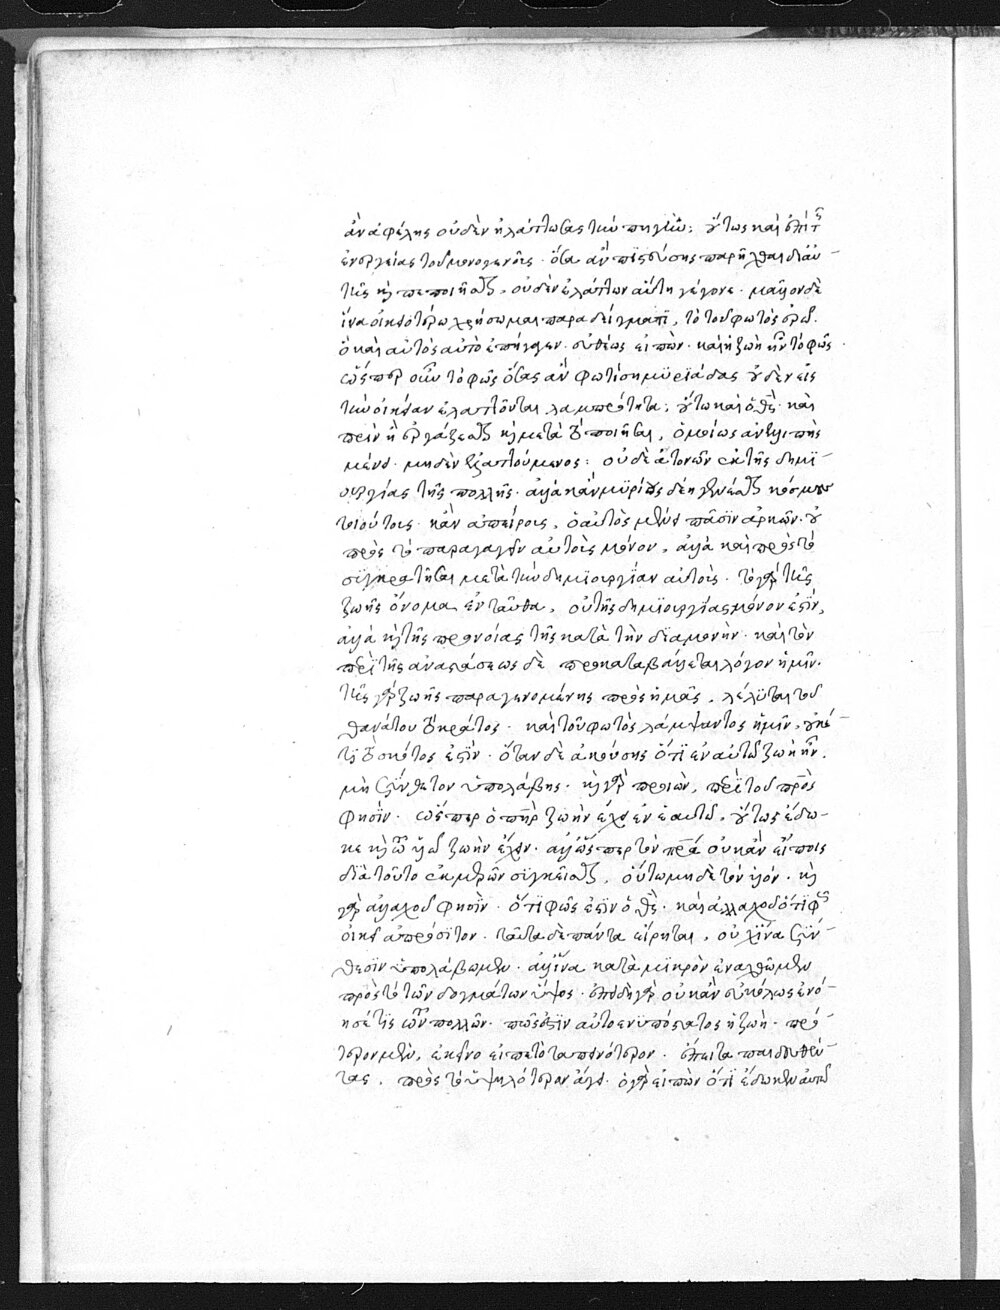 ἂν ἀφέλης οὐδὲν ἠλάττωσας τὴν πηγήν· οὕτως καὶ ἐπὶ τῆς
ἐνεργείας τοῦ μονογενοῦς· ὅσα ἂν πιστεύσης παρῆχθαι δι' αὐ-
τῆς καὶ πεποιῆσθαι, οὐδὲν ἐλάττων αὕτη γέγονε· μᾶλλον δὲ
ἵνα οἰκειοτέρω χρήσωμαι παραδείγματι, τὸ τοῦ φωτὸς ἐρῶ.
ὃ καὶ αὐτὸς αὐτὸ ἐπήγαγεν· εὐθέως εἰπὼν· καὶ ἡ ζωὴ ἦν τὸ φῶς·
ὥσπερ οὖν τὸ φῶς ὅσας ἂν φωτίση μυριάδας οὐδὲν εἰς
τὴν οἰκείαν ἐλαττοῦται λαμπρότητα· οὕτω καὶ ὁ θς· καὶ
πρὶν ἢ ἐργάζεσθαι καὶ μετὰ τὸ ποιῆσαι, ὁμοίως ἀνελλιπὴς
μένει· μηδὲν ἐλαττούμενος· οὐδὲ ἀτονῶν ἐκ τῆς δημι-
ουργίας τῆς πολλῆς· ἀλλὰ κἂν μυρίους δέη γενέσθαι κόσμους
τοιούτοις· κἂν ἀπείροις, ὁ αὐτὸς μένει πᾶσιν ἀρκῶν· οὐ
πρὸς τὸ παραγαγεῖν αὐτοὺς μόνον, ἀλλὰ καὶ πρὸς τὸ
συγκρατῆσαι μετὰ τὴν δημιουργίαν αὐτοὺς· τὸ γὰρ τῆς
ζωῆς ὄνομα ἐνταῦθα, οὐ τῆς δημιουργίας μόνον ἐστὶν,
ἀλλὰ καὶ τῆς προνοίας τῆς κατὰ τὴν διαμονὴν· καὶ τὸν
περὶ τῆς ἀναστάσεως δὲ προκαταβάλλεται λόγον ἡμῖν·
τῆς γὰρ ζωῆς παραγενομένης πρὸς ἡμᾶς, λέλυται τοῦ
θανάτου τὸ κράτος· καὶ τοῦ φωτὸς λάμψαντος ἡμῖν, οὐκέ-
τι τὸ σκότος ἐστὶν· ὅταν δὲ ἀκούσης ὅτι ἐν αὐτῶ ζωὴ ἦν,
μὴ σύνθετον ὑπολάβης· καὶ γὰρ προιὼν, περὶ τοῦ πρὸς
φησὶν· ὥσπερ ὁ πὴρ ζωὴν ἔχει ἐν ἑαυτῶ, οὕτως ἔδω-
κε καὶ τῶ υἱῶ ζωὴν ἔχειν· ἀλλ' ὥσπερ τὸν πρα οὐκ ἂν εἴποις
διὰ τοῦτο ἐκ μερῶν συγκεῖσθαι, οὕτω μηδὲ τὸν υἱόν· καὶ
γὰρ ἀλλαχοῦ φησὶν· ὅτι φῶς ἐστὶν ὁ θς· καὶ ἀλλαχοῦ ὅτι φῶς
οἰκεῖ ἀπρόσιτον· ταῦτα δὲ πάντα εἴρηται, οὐχ ἵνα σύν-
θεσιν ὑπολάβωμεν· ἀλλ' ἵνα κατὰ μικρὸν ἐναχθῶμεν
πρὸς τὸ τῶν δογμάτων ὕψος· ἐπειδὴ γὰρ οὐκ ἂν εὐκόλως ἐνό-
ησέ τις τῶν πολλῶν· πῶς ἐστὶν αὐτοενυπόστατος ἡ ζωὴ· πρό-
τερον μὲν, ἐκεῖνο εἶπε τὸ ταπεινότερον· ἔπειτα παιδευθέν-
τας, πρὸς τὸ ὑψηλότερον ἄγει· ὁ γὰρ εἰπὼν ὅτι ἔδωκεν αὐτῶ